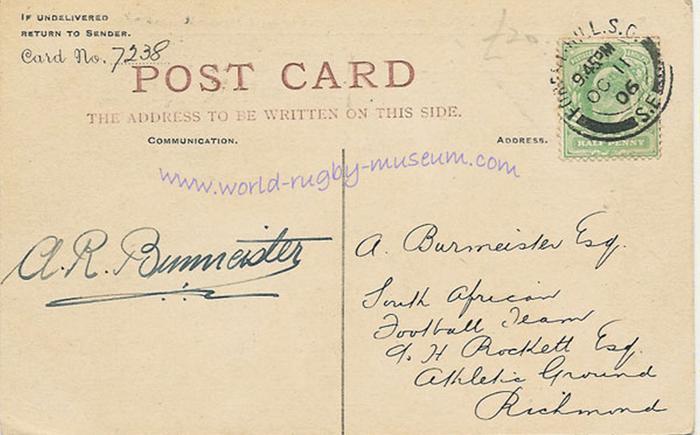 IF UNDELIVERED
RETURN TO SENDER.
Card No. 7238
POST CARD
THE ADDRESS TO BE WRITTEN ON THIS SIDE.
COMMUNICATION.
ADDRESS.
FOREST HILL S.O.
9.45PM
OC 11
06
S.E.
HALF PENNY
£20
www.world-rugby-museum.com
A. R. Burmeister
A. Burmeister Esq.
South African
Football Team
C. H Rockett Esq
Athletic Ground
Richmond